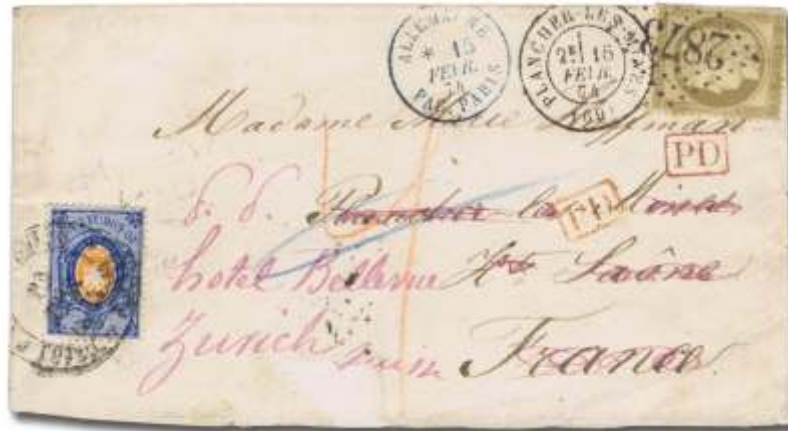 ALLEMAGNE
* 15
FEVR.
74
PAR. PARIS
PLANCHER-LES-MINES
2E 16
FEVR.
74
(69)
2873
Madame Marie Hoffman
PD
PD
Plancher les Mines
hotel Bellevue Hte Saône
Zurich suisse France